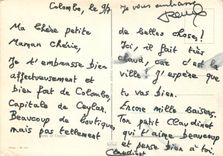 Colombo, le 9/
Ma chère petite
Maman chérie,
Je t'embrasse bien
affectueusement et
bien fort de Colombo,
Capitale de Ceylan.
Beaucoup de boutiques
mais pas tellement
Je vous embrasse
de belles choses!
Ici, il fait très
chaud,
ville. J'espère que
tu vas bien.
Encore mille baisers.
Ton petit Claudinet
qui t'aime beaucoup
et pense bien à toi.
Claudinet